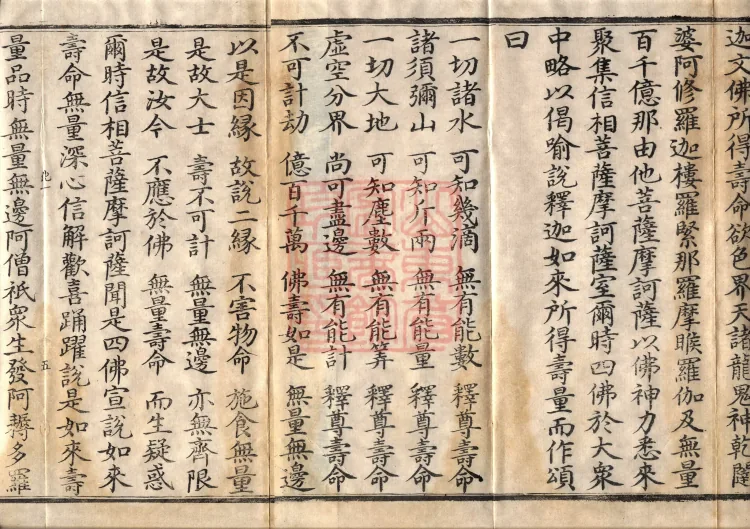 迦文佛所得壽命欲色界天諸龍鬼神乾闥
婆阿修羅迦樓羅緊那羅摩睺羅伽及無量
百千億那由他菩薩摩訶薩以佛神力悉來
聚集信相菩薩摩訶薩室爾時四佛於大衆
中略以偈喻說釋迦如來所得壽量而作頌
曰
一切諸水 可知幾滴 無有能數 釋尊壽命
諸須彌山 可知斤兩 無有能量 釋尊壽命
一切大地 可知塵數 無有能筭 釋尊壽命
虛空分界 尚可盡邊 無有能計 釋尊壽命
不可計劫 億百千萬 佛壽如是 無量無邊
以是因緣 故說二緣 不害物命 施食無量
是故大士 壽不可計 無量無邊 亦無齊限
是故汝今 不應於佛 無量壽命 而生疑惑
爾時信相菩薩摩訶薩聞是四佛宣說如來
壽命無量深心信解歡喜踊躍說是如來壽
五
量品時無量無邊阿僧祇衆生發阿耨多羅